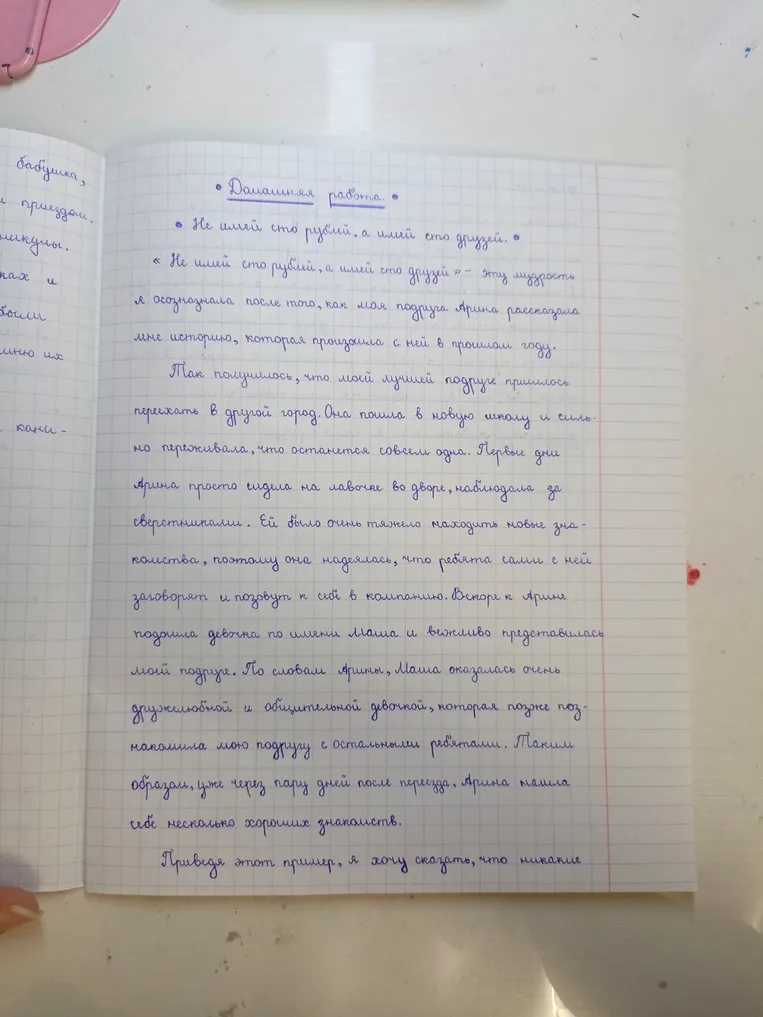 бабушка,
приездом.
никулы.
ках и
были
мню их
кани-
• Домашняя работа. •
• Не имей сто рублей, а имей сто друзей. •
« Не имей сто рублей, а имей сто друзей » – эту мудрость
я осознала после того, как моя подруга Арина рассказала
мне историю, которая произошла с ней в прошлом году.
Так получилось, что моей лучшей подруге пришлось
переехать в другой город. Она пошла в новую школу и силь-
но переживала, что останется совсем одна. Первые дни
Арина просто сидела на лавочке во дворе, наблюдала за
сверстниками. Ей было очень тяжело находить новые зна-
комства, поэтому она надеялась, что ребята сами с ней
заговорят и позовут к себе в компанию. Вскоре к Арине
подошла девочка по имени Маша и вежливо представилась
моей подруге. По словам Арины, Маша оказалась очень
дружелюбной и общительной девочкой, которая позже поз-
накомила мою подругу с остальными ребятами. Таким
образом, уже через пару дней после переезда, Арина нашла
себе несколько хороших знакомств.
Приведя этот пример, я хочу сказать, что никакие